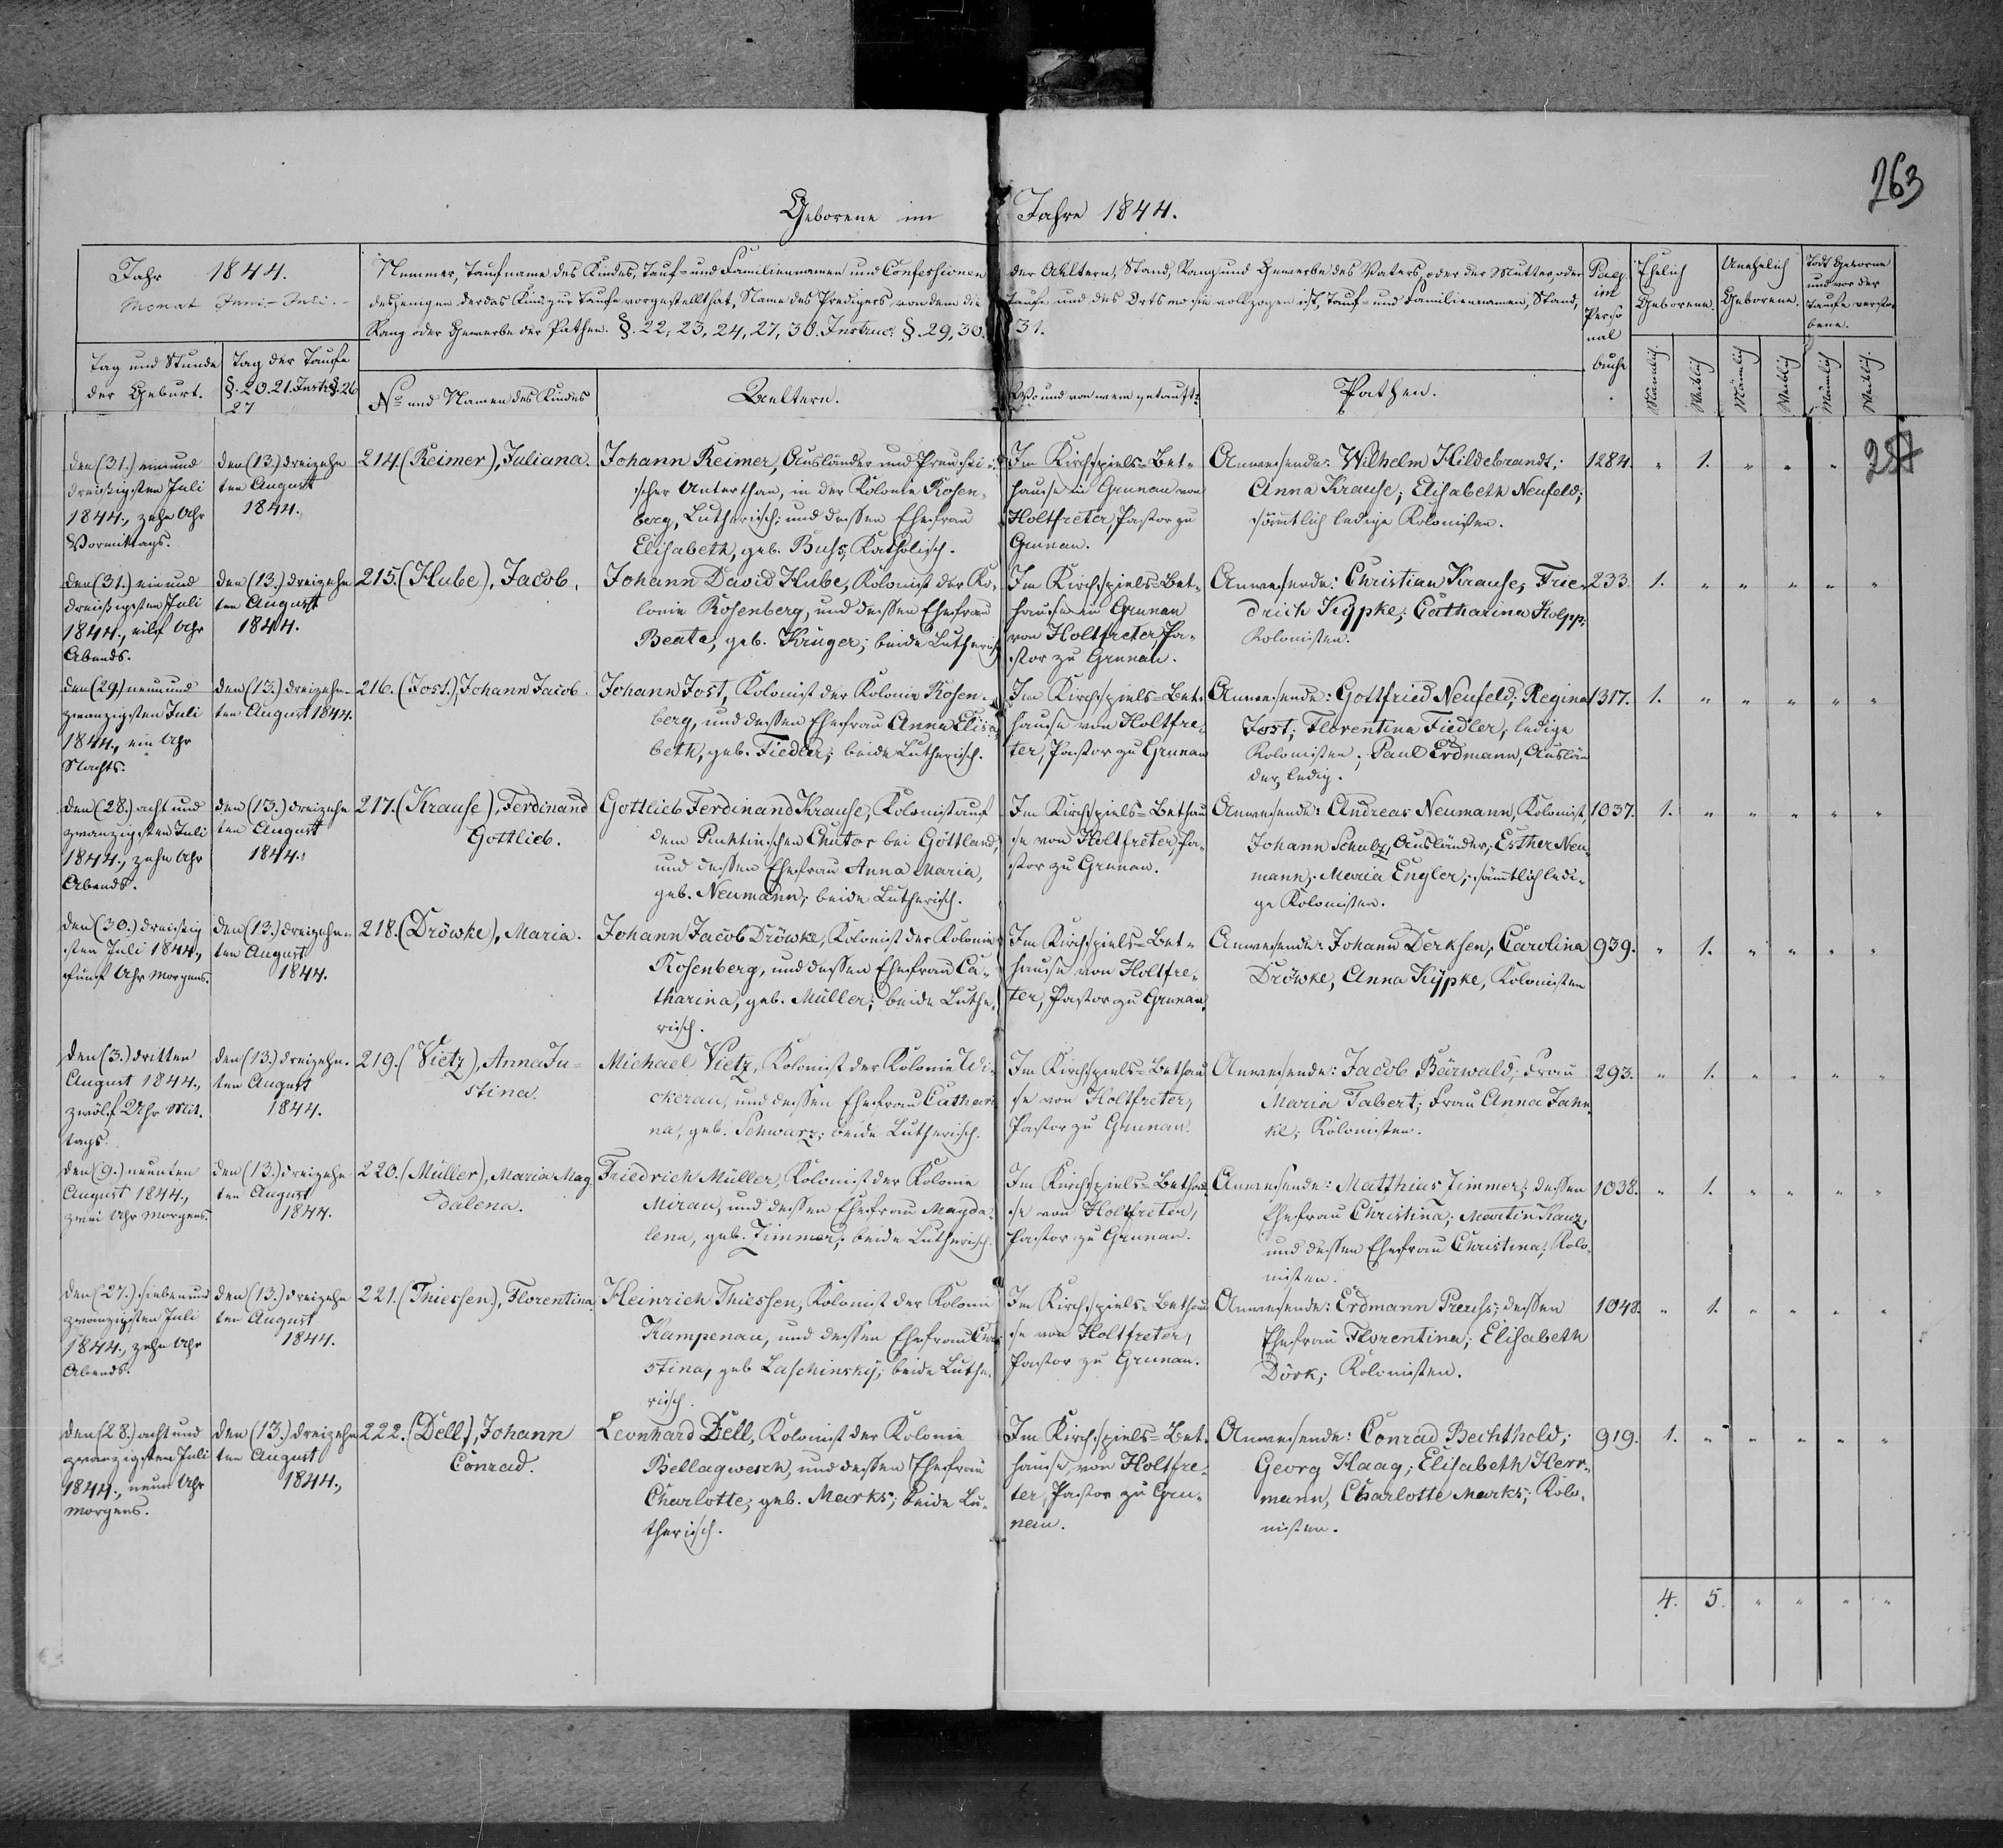 263
Geborene im Jahre 1844.
Jahr 1844.
Monat Juni-Juli.
Tag und Stunde der Geburt.
Tag der Taufe
§. 20. 21. Instr. §. 26
27
Nummer, Taufname des Kindes, Tauf- und Familiennamen und Confessionen der Aeltern, Stand, Rang und Gewerbe des Vaters, oder der Mutter, oder
desjenigen der das Kind zur Taufe vorgestellt hat, Name des Predigers, von dem die Taufe und des Orts wo sie vollzogen ist, Tauf- und Familiennamen, Stand,
Rang oder Gewerbe der Pathen. §. 22, 23, 24, 27, 30. Instruc: §. 29, 30. 31.
No und Namen des Kindes
Aeltern.
Wo und von wem getauft:
Pathen.
Pag.
im
Perso
nal
buche
Ehelich
Geborene.
Unehelich
Geborene.
Todt Geborne
und vor der
Taufe verstor
bene.
Männlich.
Weiblich
Männlich
Weiblich
Männlich
Weiblich.
257
den (31.) ein und
dreißigsten Juli
1844., zehn Uhr
Vormittags.
den (13.) dreizehn
ten August
1844.
214. (Reimer), Juliana.
Johann Reimer, Ausländer und Preußi-
scher Unterthan, in der Kolonie Rosen-
berg, Lutherisch; und dessen Ehefrau
Elisabeth, geb. Buss, Katholisch.
Im Kirchspiels-Bet-
hause in Grunau von
Holtfreter, Pastor zu
Grunau.
Anwesende: Wilhelm Hildebrandt;
Anna Krause; Elisabeth Neufeld;
sämtlich ledige Kolonisten.
1284. " 1. " " "
den (31.) ein und
dreißigsten Juli
1844., eilf Uhr
Abends.
den (13.) dreizehn
ten August
1844.
215. (Hube), Jacob.
Johann David Hube, Kolonist der Ko-
lonie Rosenberg, und dessen Ehefrau
Beata, geb. Krüger; beide Lutherisch
Im Kirchspiels-Bet-
hause in Grunau
von Holtfreter, Pa-
stor zu Grunau.
Anwesende: Christian Krause; Frie-
drich Kypke; Catharina Stolpp;
Kolonisten.
233. 1. " " " " "
den (29.) neun und
zwanzigsten Juli
1844., ein Uhr
Nachts.
den (13.) dreizehn-
ten August 1844.
216. (Jost.), Johann Jacob.
Johann Jost, Kolonist der Kolonie Rosen-
berg, und dessen Ehefrau Anna Elisa-
beth, geb. Fiedler; beide Lutherisch.
Im Kirchspiels-Bet-
hause von Holtfre-
ter, Pastor zu Grunau
Anwesende: Gottfried Neufeld; Regina
Jost; Florentina Fiedler, ledige
Kolonisten; Paul Erdmann, Auslän
der, ledig.
1317. 1. " " " " "
den (28.) acht und
zwanzigsten Juli
1844., zehn Uhr
Abends.
den (13.) dreizehn
ten August
1844.
217. (Krause), Ferdinand
Gottlieb.
Gottlieb Ferdinand Krause, Kolonist auf
dem Chutor bei Göttland,
und dessen Ehefrau Anna Maria,
geb. Neumann; beide Lutherisch.
Im Kirchspiels-Bethau
se von Holtfreter, Pa-
stor zu Grunau.
Anwesende: Andreas Neumann, Kolonist,
Johann Schulz, Ausländer; Esther Neu-
mann; Maria Engler; sämtlich ledi-
ge Kolonisten.
1037. 1. " " " " "
den (30.) dreißig
sten Juli 1844.,
fünf Uhr Morgens.
den (13.) dreizehn-
ten August
1844.
218. (Dröwke), Maria.
Johann Jacob Dröwke, Kolonist der Kolonie
Rosenberg, und dessen Ehefrau Ca-
tharina, geb. Müller; beide Luthe-
risch.
Im Kirchspiels-Bet-
hause von Holtfre-
ter, Pastor zu Grunau.
Anwesende: Johann Derksen; Carolina
Dröwke, Anna Kypke, Kolonisten
939. " 1. " " " "
den (3.) dritten
August 1844.,
zwölf Uhr Mit-
tags.
den (13.) dreizehn-
ten August
1844.
219. (Vietz), Anna Ju-
stina.
Michael Vietz, Kolonist der Kolonie Wi-
ckerau, und dessen Ehefrau Cathari
na, geb. Schwarz; beide Lutherisch.
Im Kirchspiels-Bethau
se von Holtfreter,
Pastor zu Grunau.
Anwesende: Jacob Bärwald; Frau
Maria Tabert; Frau Anna Jahn-
ke; Kolonisten.
293. " 1. " " " "
den (9.) neunten
August 1844.,
zwei Uhr Morgens.
den (13.) dreizehn
ten August
1844.
220. (Müller), Maria Mag-
dalena.
Friedrich Müller, Kolonist der Kolonie
Mirau, und dessen Ehefrau Magda-
lena, geb. Zimmer; beide Lutherisch.
Im Kirchspiels-Bethau
se von Holtfreter,
Pastor zu Grunau.
Anwesende: Matthias Zimmer; dessen
Ehefrau Christina; Martin Kanz,
und dessen Ehefrau Christina; Kolo-
nisten.
1038. " 1. " " " "
den (27.) sieben und
zwanzigsten Juli
1844., zehn Uhr
Abends.
den (13.) dreizehn
ten August
1844.
221. (Thiessen), Florentina
Heinrich Thiessen, Kolonist der Kolonie
Kampenau, und dessen Ehefrau Chri-
stina, geb. Laschinsky; beide Luthe-
risch.
Im Kirchspiels-Bethau
se von Holtfreter,
Pastor zu Grunau.
Anwesende: Erdmann Preuss; dessen
Ehefrau Florentina; Elisabeth
Dörk; Kolonisten.
1048. " 1. " " " "
den (28.) acht und
zwanzigsten Juli
1844., neun Uhr
Morgens.
den (13.) dreizehn
ten August
1844.,
222. (Dell), Johann
Conrad.
Leonhard Dell, Kolonist der Kolonie
Bellagwesch, und dessen Ehefrau
Charlotte, geb. Marks; beide Lu-
therisch.
Im Kirchspiels-Bet-
hause, von Holtfre-
ter, Pastor zu Gru-
nau.
Anwesende: Conrad Bechthold;
Georg Haag; Elisabeth Herr-
mann, Charlotte Marks; Kolo-
nisten.
919. 1. " " " " "
4. 5. " " " "